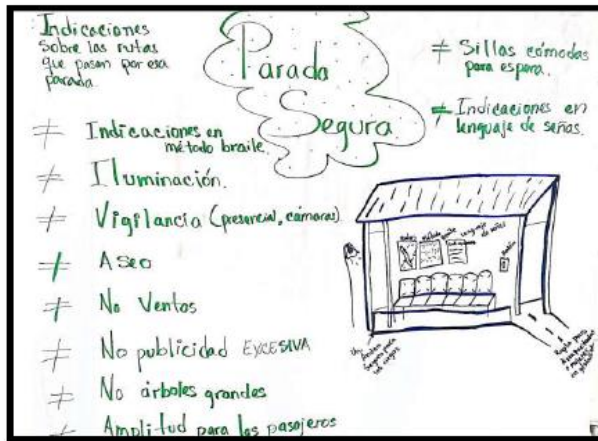 Indicaciones
sobre las rutas
que pasan por esa
parada.
Parada
Segura
≠ Sillas cómodas
para espera.
≠ Indicaciones en
lenguaje de señas.
≠ Indicaciones en
método braile.
≠ Iluminación.
≠ Vigilancia (presencial, cámaras)
≠ Aseo
≠ No Ventas
≠ No publicidad EXCESIVA
≠ No árboles grandes
≠ Amplitud para los pasajeros
lenguaje de señas